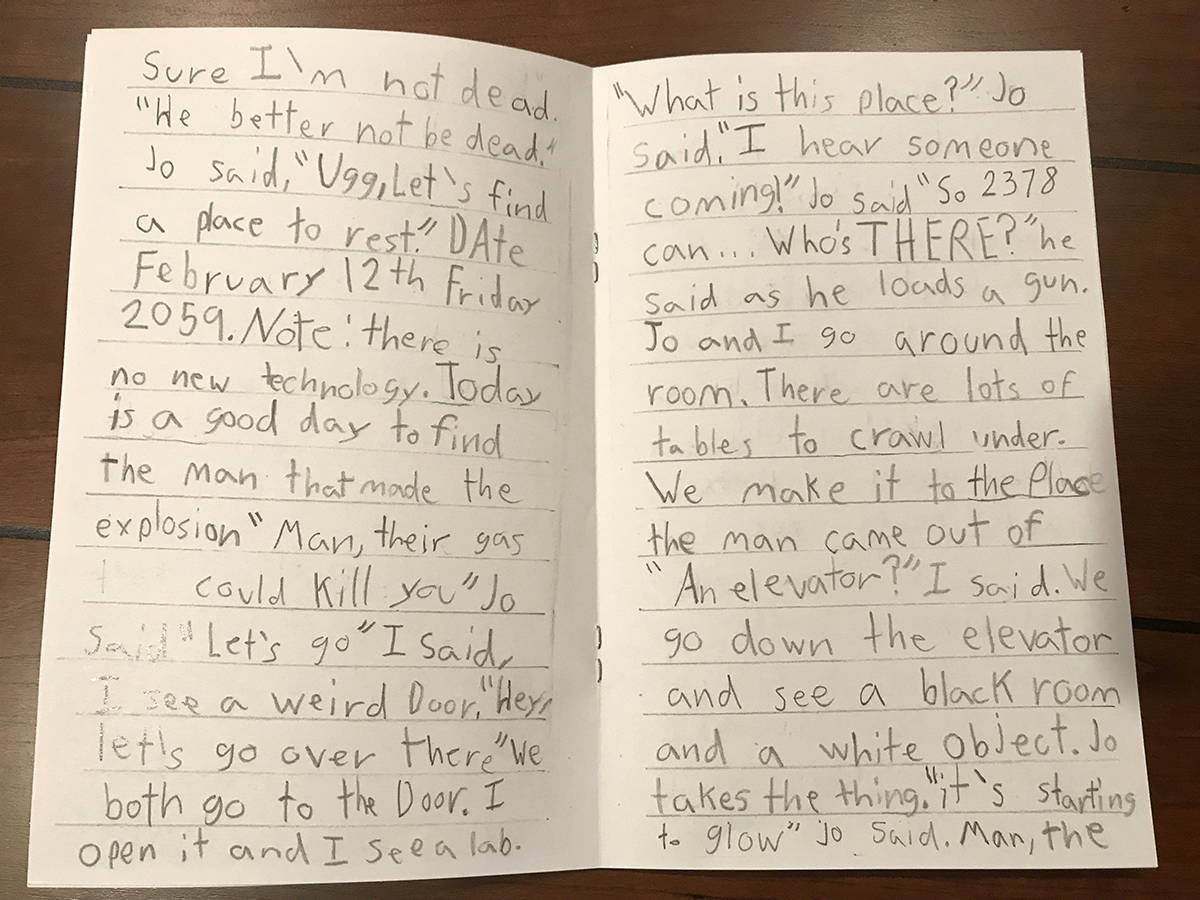 Sure I'm not dead.
"He better not be dead."
Jo said, "Ugg, Let's find
a place to rest." DAte
February 12th Friday
2059. Note: there is
no new technology. Today
is a good day to find
the man that made the
explosion "Man, their gas
could kill you" Jo
said "Let's go" I said,
I see a weird Door, "Hey,
let's go over there" We
both go to the Door. I
open it and I see a lab.
"What is this place?" Jo
said, "I hear someone
coming!" Jo said "So 2378
can... Who's THERE?" he
said as he loads a gun.
Jo and I go around the
room. There are lots of
tables to crawl under.
We make it to the Place
the man came out of
"An elevator?" I said. We
go down the elevator
and see a black room
and a white object. Jo
takes the thing. "it's starting
to glow" Jo said. Man, the